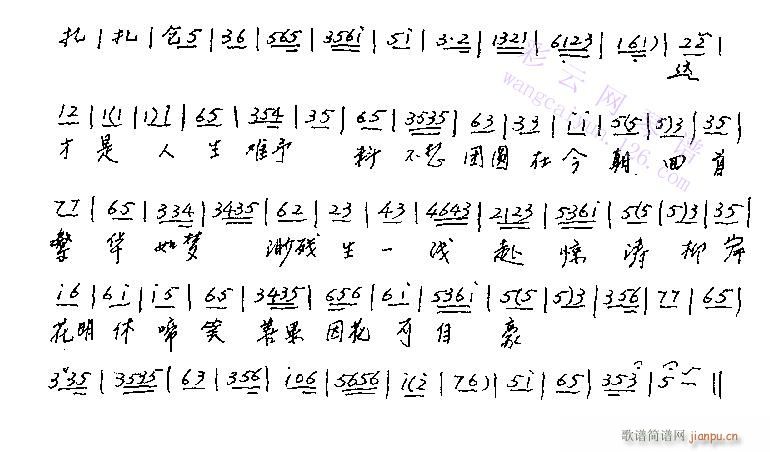 扎 | 扎 | 仓5 | 36 | 565 | 356i | 5i | 3·2 | 1321 | 6123 | 161) | 22 |
这
12 | 1(1 | 1)1 | 65 | 354 | 35 | 65 | 3535 | 63 | 33 | ii | 5(5 | 5)3 | 35 |
才是 人生难予 料不想团圆在今朝回首
77 | 65 | 334 | 3435 | 62 | 23 | 43 | 4643 | 2123 | 536i | 5(5 | 5)3 | 35 |
繁华如梦 渺残生一浅赴惊涛柳岸
i6 | 6i | i5 | 65 | 3435 | 656 | 6i | 536i | 5(5 | 5)3 | 356 | 77 | 65 |
花明休啼笑善果因花可自豪
335 | 3535 | 63 | 356 | i06 | 5656 | i(2 | 76) | 5i | 65 | 353 | 5 ||
彩云网
wangcaiyun.126.com
歌谱简谱网 jianpu.cn